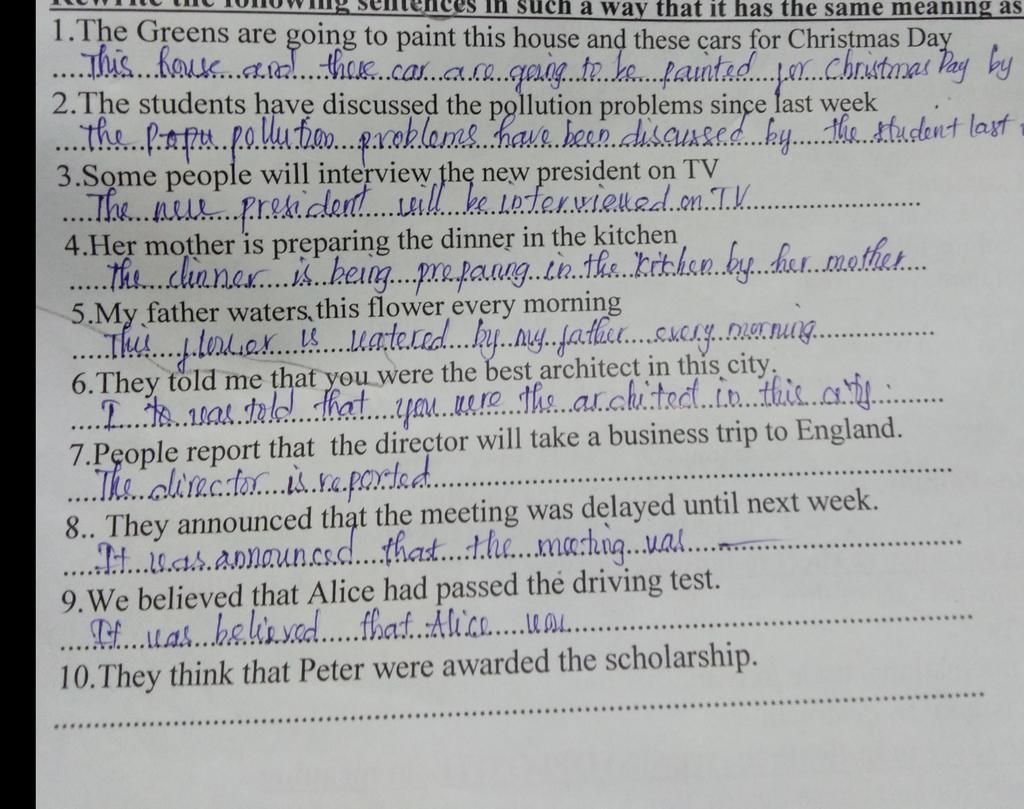 Rewrite the following sentences in such a way that it has the same meaning as
1.The Greens are going to paint this house and these cars for Christmas Day
.....This house and these car are going to be painted for Christmas Day by
2.The students have discussed the pollution problems since last week
....The pollution problems have been discussed by the student last
3.Some people will interview the new president on TV
....The new president will be interviewed on TV
4.Her mother is preparing the dinner in the kitchen
.....The dinner is being preparing in the kitchen by her mother
5.My father waters this flower every morning
.....This flower is watered by my father every morning
6.They told me that you were the best architect in this city.
....I to was told that you were the architect in this city.
7.People report that the director will take a business trip to England.
.....The director is reported
8.. They announced that the meeting was delayed until next week.
....It was announced that the meeting was
9.We believed that Alice had passed the driving test.
....It was believed that Alice was
10.They think that Peter were awarded the scholarship.